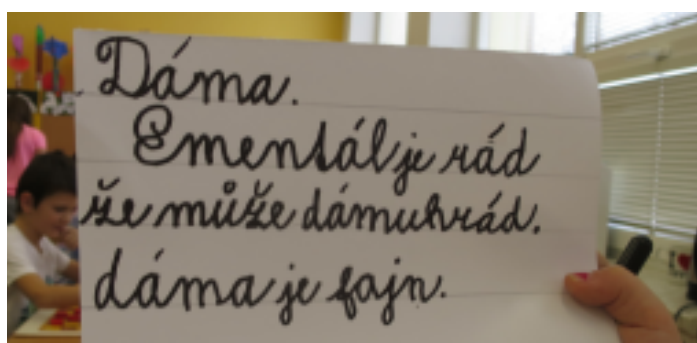 Dáma.
Ementál je rád
že může dámu hrád.
dáma je fajn.